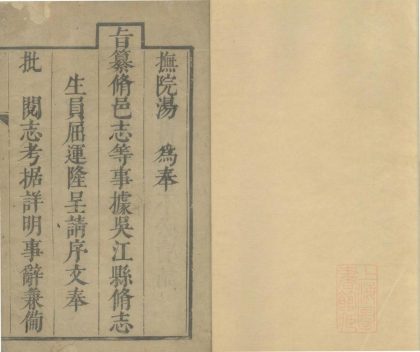 撫院湯　為奉
旨纂脩邑志等事據吳江縣脩志
生員屈運隆呈請序文奉
批　閱志考据詳明事辭兼備